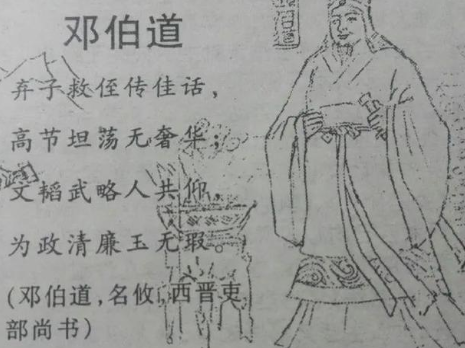 邓伯道
弃子救侄传佳话，
高节坦荡无奢华；
文韬武略人共仰，
为政清廉玉无瑕。
(邓伯道，名攸，西晋吏
部尚书)